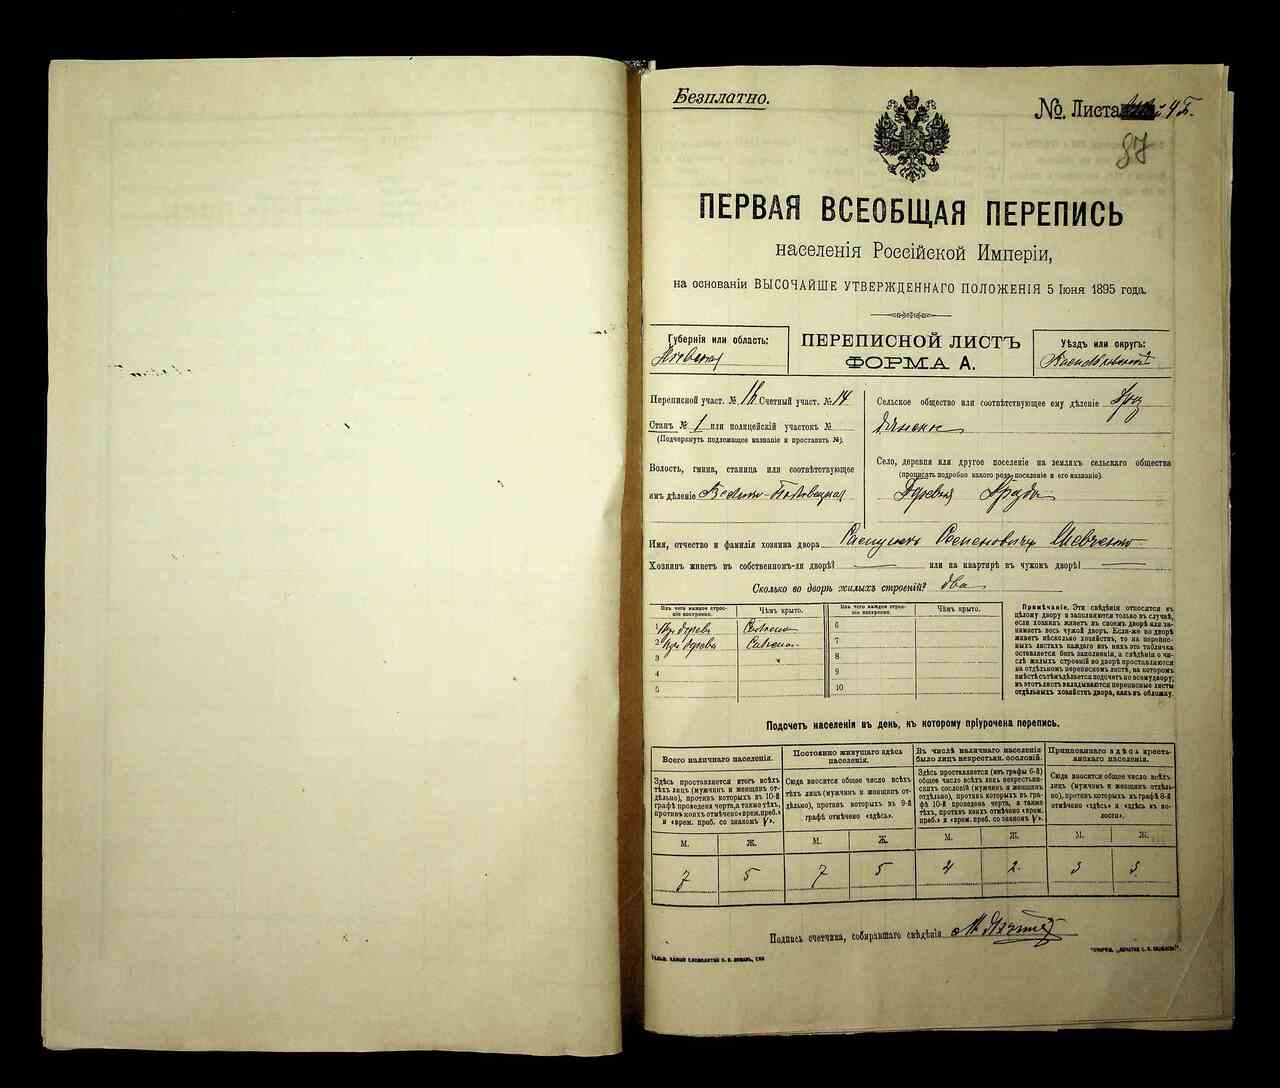 Безплатно.
№ Листа 4 Б.
87
ПЕРВАЯ ВСЕОБЩАЯ ПЕРЕПИСЬ
населенія Россійской Имперіи,
на основаніи ВЫСОЧАЙШЕ УТВЕРЖДЕННАГО ПОЛОЖЕНІЯ 5 Іюня 1895 года.
Губернія или область:
Кіевская
ПЕРЕПИСНОЙ ЛИСТЪ
ФОРМА А.
Уѣздъ или округъ:
Васильковскій
Переписной участ. № Счетный участ. № 14
Станъ № 1 или полицейскій участокъ №
(Подчеркнуть подлежащее названіе и проставить №).
Волость, гмина, станица или соотвѣтствующее
имъ дѣленіе Велико-Половецкая
Сельское общество или соотвѣтствующее ему дѣленіе
Село, деревня или другое поселеніе на земляхъ сельскаго общества
(прописать подробно какого рода поселеніе и его названіе).
Деревня
Имя, отчество и фамилія хозяина двора Семеновичъ Шевченко
Хозяинъ живетъ въ собственномъ-ли дворѣ? или на квартирѣ въ чужомъ дворѣ?
Сколько во дворѣ жилыхъ строеній? два
Изъ чего каждое строеніе построено.
Чѣмъ крыто.
Изъ чего каждое строеніе построено.
Чѣмъ крыто.
1 Изъ дерева Соломою 6
2 Изъ дерева Соломою 7
3 8
4 9
5 10
Примѣчаніе. Эти свѣдѣнія относятся къ
цѣлому двору и заполняются только въ случаѣ,
если хозяинъ живетъ въ своемъ дворѣ или занимаетъ
весь чужой дворъ. Если-же во дворѣ
живетъ нѣсколько хозяйствъ, то на переписныхъ
листахъ каждаго изъ нихъ эта табличка
оставляется безъ заполненія, а свѣдѣнія о числѣ
жилыхъ строеній во дворѣ проставляются
на отдѣльномъ переписномъ листѣ, на которомъ
вмѣстѣ съ тѣмъ дѣлается подсчетъ по всему двору;
въ этотъ листъ вкладываются переписные листы
отдѣльныхъ хозяйствъ двора, какъ въ обложку.
Подсчетъ населенія въ день, къ которому пріурочена перепись.
Всего наличнаго населенія.
Здѣсь проставляется итогъ всѣхъ
тѣхъ лицъ (мужчинъ и женщинъ отдѣльно),
противъ которыхъ въ 10-й
графѣ проведена черта, а также тѣхъ,
противъ коихъ отмѣчено «врем. преб.»
и «врем. преб. со знакомъ V».
Постоянно живущаго здѣсь
населенія.
Сюда вносится общее число всѣхъ
тѣхъ лицъ (мужчинъ и женщинъ отдѣльно),
противъ которыхъ въ 9-й
графѣ отмѣчено «здѣсь».
Въ числѣ наличнаго населенія
было лицъ некрестьян. сословій.
Здѣсь проставляется (изъ графы 6-й)
общее число всѣхъ лицъ некрестьянскихъ
сословій (мужчинъ и женщинъ
отдѣльно), противъ которыхъ въ графѣ
10-й проведена черта, а также
тѣхъ, противъ коихъ отмѣчено «врем.
преб.» и «врем. преб. со знакомъ V».
Приписаннаго здѣсь крестьянскаго
населенія.
Сюда вносится общее число всѣхъ
лицъ (мужчинъ и женщинъ отдѣльно),
противъ которыхъ въ графѣ 8-й
отмѣчено «здѣсь» и «здѣсь въ волости».
М. Ж. М. Ж. М. Ж. М. Ж.
7 5 7 5 4 2 3 3
Подпись счетчика, собиравшаго свѣдѣнія